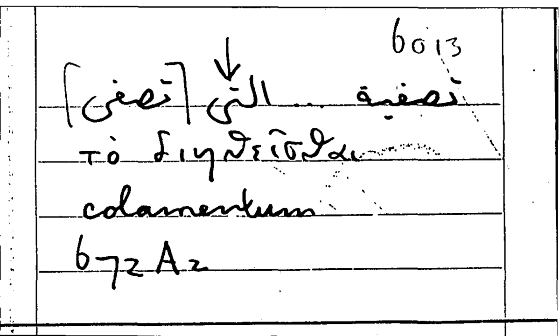 6013
تصفية ... التى [تصفى]
τὸ διηθεῖσθαι
colamentum
672 A2